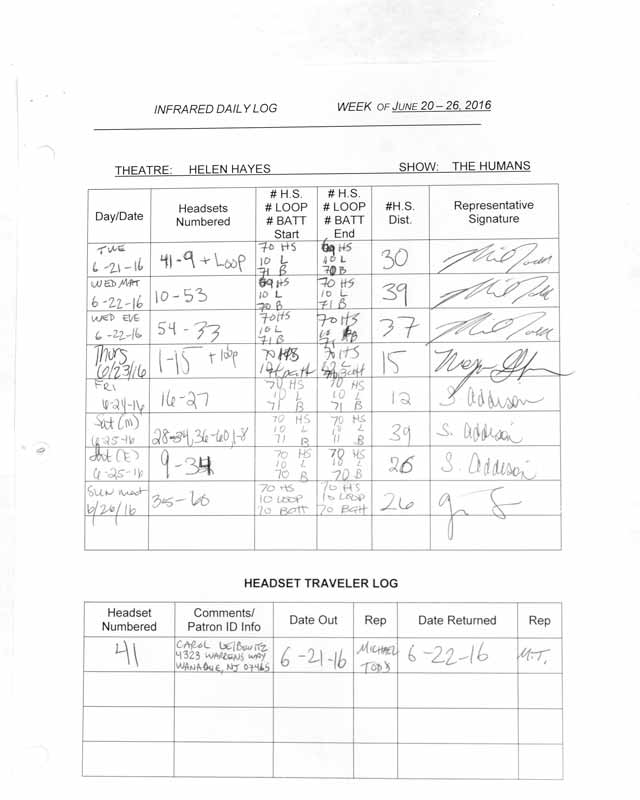 INFRARED DAILY LOG WEEK OF JUNE 20 – 26, 2016
THEATRE: HELEN HAYES SHOW: THE HUMANS
Day/Date Headsets Numbered # H.S. # LOOP # BATT Start # H.S. # LOOP # BATT End #H.S. Dist. Representative Signature
TUE 6-21-16 41-9 + LOOP 70 HS 10 L 71 B 69 HS 10 L 70 B 30
WED MAT 6-22-16 10-53 69 HS 10 L 70 B 70 HS 10 L 71 B 39
WED EVE 6-22-16 54-33 70 HS 10 L 71 B 70 HS 10 71 B 37
Thurs 6/23/16 1-15 + loop 70 HS 70 HS 15
FRI 6-24-16 16-27 70 HS 10 L 71 B 70 HS 10 L 71 B 12 S Addison
Sat (M) 6-25-16 28-34, 36-60, 1-8 70 HS 10 L 71 B 70 HS 10 L 71 B 39 S. Addison
Sat (E) 6-25-16 9-34 70 HS 10 L 70 B 70 HS 10 L 70 B 26 S. Addison
SUN mat 6/26/16 35-60 70 HS 10 LOOP 70 BATT 70 HS 10 LOOP 70 BATT 26
HEADSET TRAVELER LOG
Headset Numbered Comments/ Patron ID Info Date Out Rep Date Returned Rep
41 CAROL LEIBOWITZ 4323 WARRENS WAY WANAQUE, NJ 07465 6-21-16 MICHAEL TODD 6-22-16 M.T.